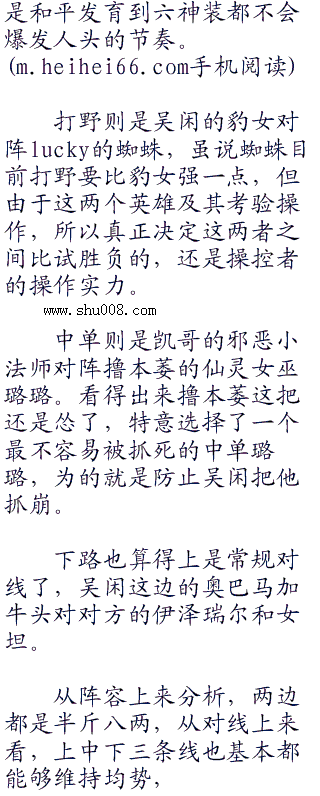 是和平发育到六神装都不会
爆发人头的节奏。
(m.heihei66.com手机阅读)
打野则是吴闲的豹女对
阵lucky的蜘蛛，虽说蜘蛛目
前打野要比豹女强一点，但
由于这两个英雄及其考验操
作，所以真正决定这两者之
间比试胜负的，还是操控者
的操作实力。
www.shu008.com
中单则是凯哥的邪恶小
法师对阵撸本萎的仙灵女巫
璐璐。看得出来撸本萎这把
还是怂了，特意选择了一个
最不容易被抓死的中单璐
璐，为的就是防止吴闲把他
抓崩。
下路也算得上是常规对
线了，吴闲这边的奥巴马加
牛头对对方的伊泽瑞尔和女
坦。
从阵容上来分析，两边
都是半斤八两，从对线上来
看，上中下三条线也基本都
能够维持均势，